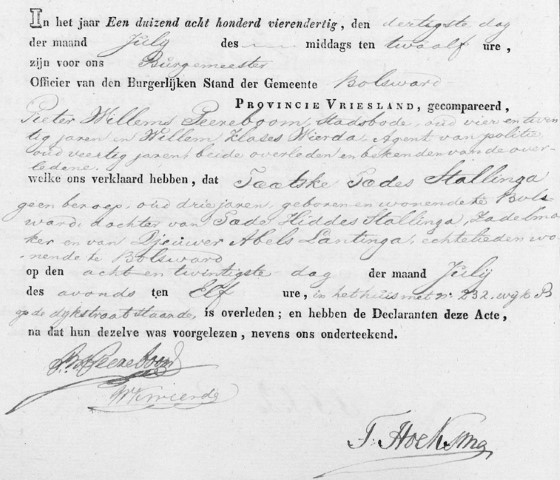 In het jaar Een duizend acht honderd vierendertig, den dertigste dag
der maand Julij des middags ten twaalf ure,
zijn voor ons Burgemeester
Officier van den Burgerlijken Stand der Gemeente Bolsward
PROVINCIE VRIESLAND, gecompareerd,
Pieter Willems Peereboom, Stadsbode, oud vier en twin
tig jaren en Willem Klases Wierda, Agent van politie
oud veertig jaren, beide overleden en bekenden van de over-
ledene.
welke ons verklaard hebben, dat Taatske Tædes Stallinga
geen beroep, oud drie jaren, geboren en wonende te Bols
ward, dochter van Tæde Hiddes Stallinga, Zadelma
ker en van Djeuwer Abels Lantinga, echtelieden wo
nende te Bolsward
op den acht en twintigste dag der maand Julij
des avonds ten Elf ure, in het huis met no. 232. wijk B
op de dijkstraat staande, is overleden; en hebben de Declaranten deze Acte,
na dat hun dezelve was voorgelezen, nevens ons onderteekend.
P. W. Peereboom
W K Wierda